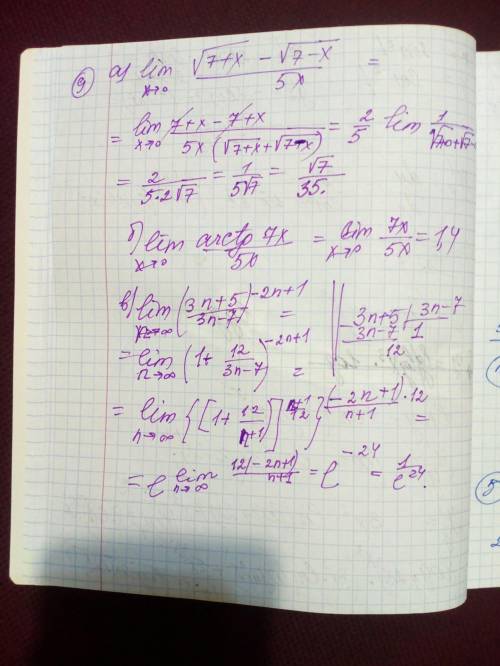 9 a) lim x→0 (√(7+x) − √(7−x)) / 5x =
= lim x→0 (7+x−7+x) / (5x(√(7+x)+√(7−x))) = 2/5 lim 1/
= 2/(5·2√7) = 1/(5√7) = √7/35.
б) lim x→0 arctg 7x / 5x = lim x→0 7x/5x = 1,4
в) lim n→∞ ((3n+5)/(3n−7))^(−2n+1) = || 3n+5 | 3n−7
= lim n→∞ (1+ 12/(3n−7))^(−2n+1) = − 3n−7 | 1
12
= lim n→∞ {[1+ 12/(n+1)]^((n+1)/12)}^((−2n+1)/(n+1) · 12) =
= e^(lim n→∞ 12(−2n+1)/(n+1)) = e^(−24) = 1/e^24.